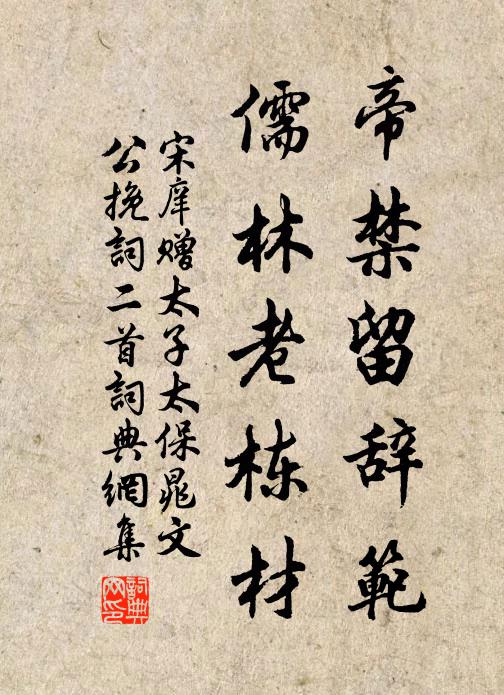 帝禁留辞範
儒林老栋材
宋庠赠太子太保晁文
公挽詞二首詞典網集
詞典
网印